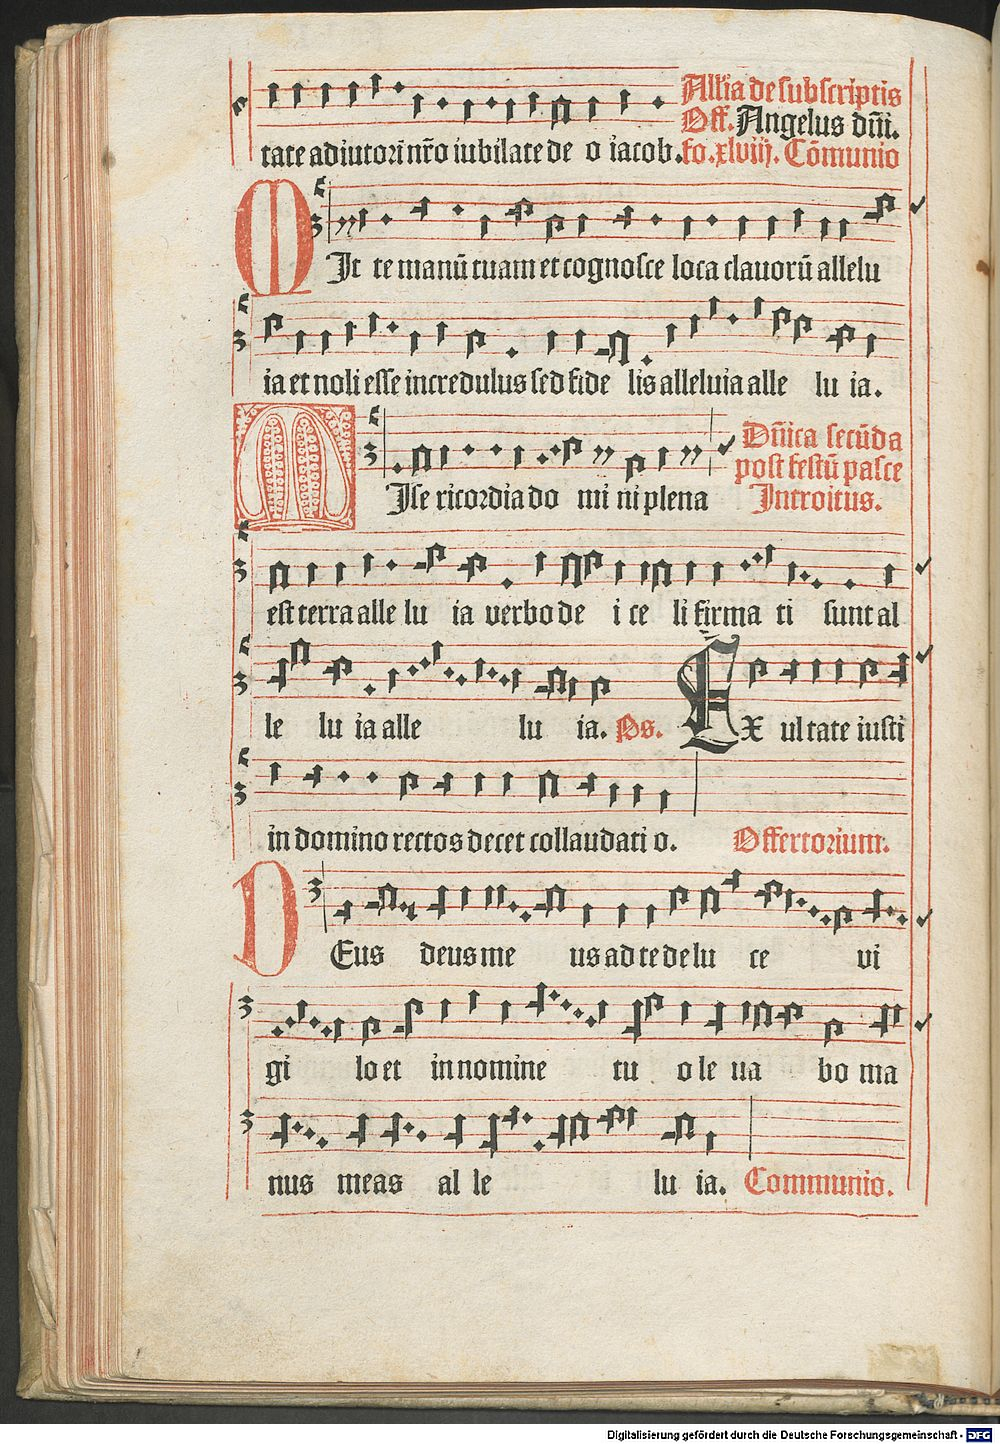 All'ia de subscriptis
Off. Angelus dn̄i.
tate adiutori nr̄o iubilate de o iacob. fo. xlviij. Cōmunio
MIt te manū tuam et cognosce loca clavorū allelu
ia et noli esse incredulus sed fide lis alleluia alle lu ia.
Dn̄ica secūda
post festū pasce
MIse ricordia do mi ni plena Introitus.
est terra alle lu ia verbo de i ce li firma ti sunt al
le lu ia alle lu ia. Ps. EX ultate iusti
in domino rectos decet collaudati o. Offertorium.
DEus deus me us ad te de lu ce vi
gi lo et in nomine tu o le ua bo ma
nus meas al le lu ia. Communio.
Digitalisierung gefördert durch die Deutsche Forschungsgemeinschaft - DFG